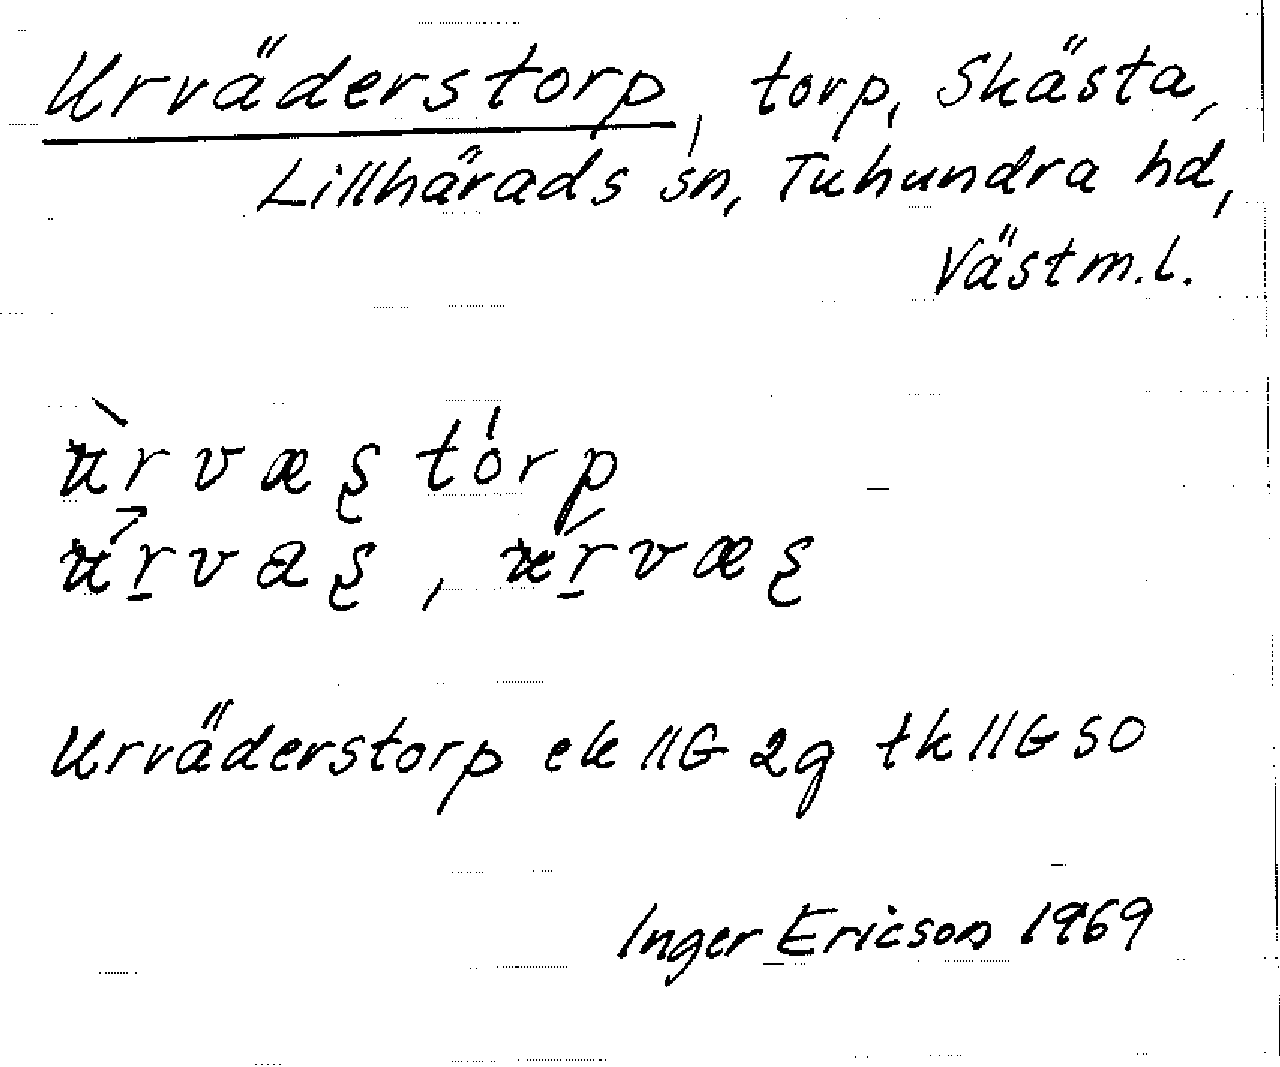 Urväderstorp, torp, Skästa,
Lillhärads sn, Tuhundra hd,
Västm.l.
ùrvæʂtórp
úrvaʂ, úrvæʂ
Urväderstorp ek 11G 2g tk 11G SO
Inger Ericson 1969